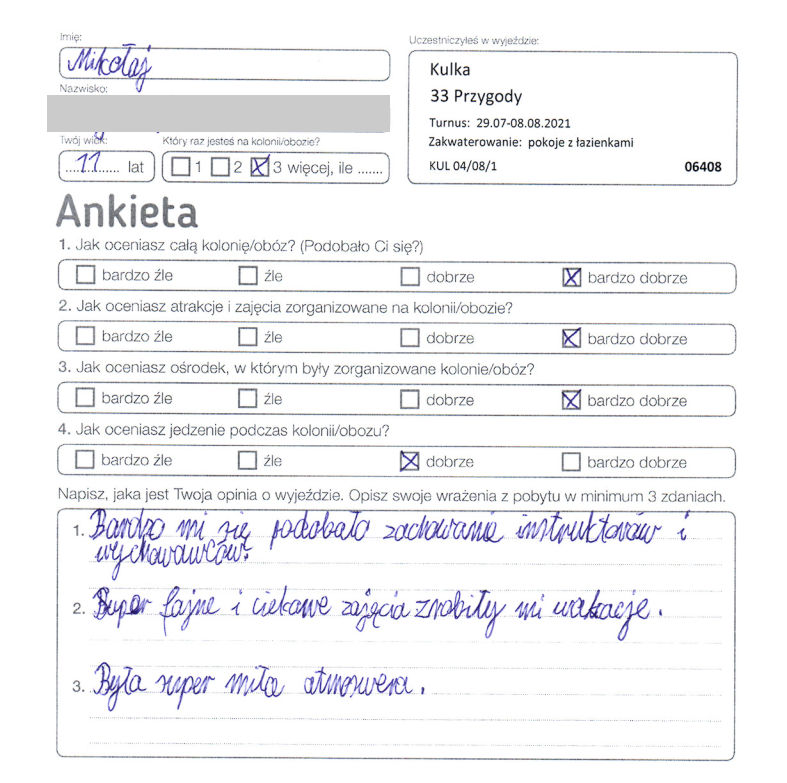 Imię:
Mikołaj
Nazwisko:
Twój wiek: Który raz jesteś na kolonii/obozie?
11 lat 1 2 3 więcej, ile .......
Uczestniczyłeś w wyjeździe:
Kulka
33 Przygody
Turnus: 29.07-08.08.2021
Zakwaterowanie: pokoje z łazienkami
KUL 04/08/1 06408
Ankieta
1. Jak oceniasz całą kolonię/obóz? (Podobało Ci się?)
bardzo źle źle dobrze bardzo dobrze
2. Jak oceniasz atrakcje i zajęcia zorganizowane na kolonii/obozie?
bardzo źle źle dobrze bardzo dobrze
3. Jak oceniasz ośrodek, w którym były zorganizowane kolonie/obóz?
bardzo źle źle dobrze bardzo dobrze
4. Jak oceniasz jedzenie podczas kolonii/obozu?
bardzo źle źle dobrze bardzo dobrze
Napisz, jaka jest Twoja opinia o wyjeździe. Opisz swoje wrażenia z pobytu w minimum 3 zdaniach.
1. Bardzo mi się podobało zachowania instruktorów i
wychowawców.
2. Super fajne i ciekawe zajęcia zrobiły mi wakacje.
3. Była super miła atmoswera.